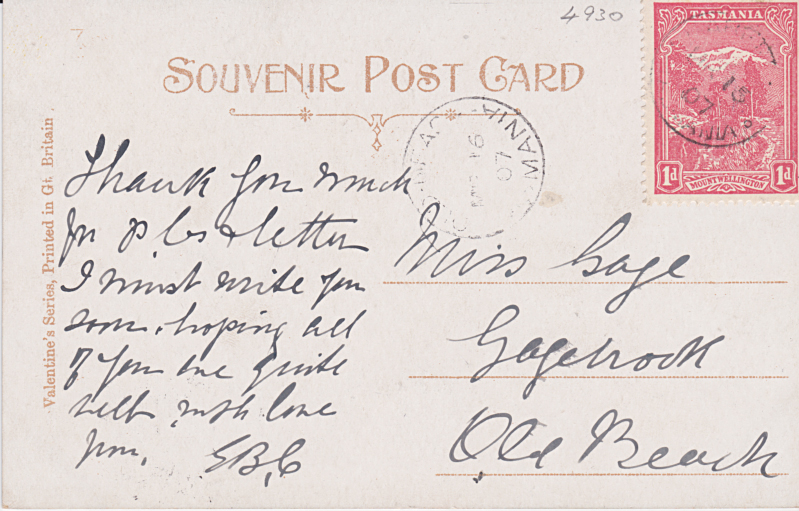 4930
SOUVENIR POST CARD
TASMANIA
1d
MOUNT WELLINGTON
1d
MANIA
16
07
Valentine's Series, Printed in Gt. Britain
Thank you much
for p cs & letter
I must write you
soon, hoping all
of you are quite
well, with love
from, EBC
Miss Gage
Gagebrook
Old Beach